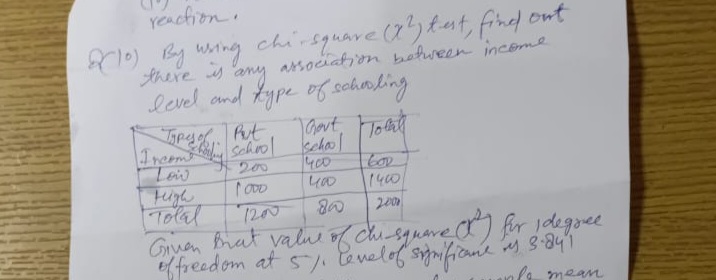 reaction.
Q(10) By using chi-square (x²) test, find out
there is any association between income
level and type of schooling
Types of Schooling Pvt school Govt school Total
Income
Low 200 400 600
High 1000 400 1400
Total 1200 800 2000
Given that value of chi-square (x²) for 1 degree
of freedom at 5% level of significane is 3.841
mean